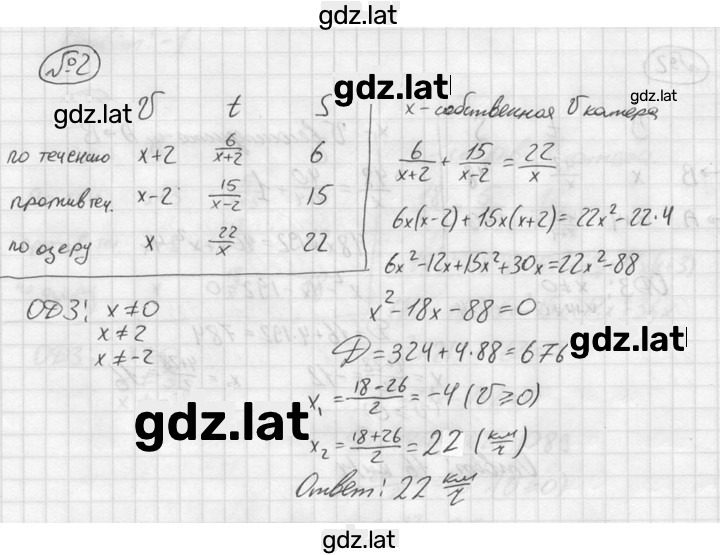 gdz.lat
№2
gdz.lat
gdz.lat
V t S
по течению x+2 6/(x+2) 6
против теч. x-2 15/(x-2) 15
по озеру x 22/x 22
ОДЗ: x≠0
x≠2
x≠-2
x - собственная V катера
6/(x+2) + 15/(x-2) = 22/x
6x(x-2)+15x(x+2)=22x²-22·4
6x²-12x+15x²+30x=22x²-88
x²-18x-88=0
D=324+4·88=676
gdz.lat
x₁=(18-26)/2=-4 (V≥0)
gdz.lat
x₂=(18+26)/2=22 (км/ч)
Ответ: 22 км/ч
gdz.lat